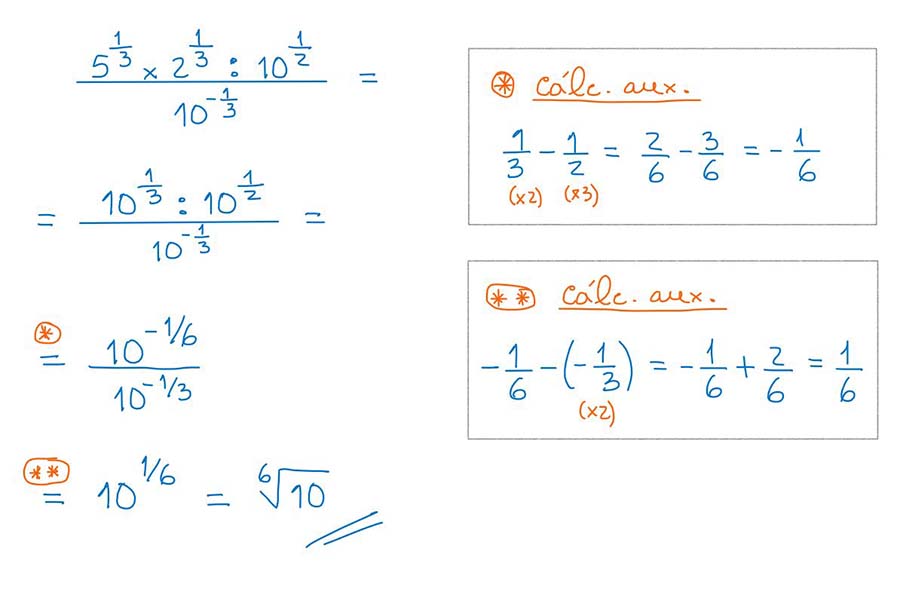 5^(1/3) × 2^(1/3) : 10^(1/2) / 10^(-1/3) =
= 10^(1/3) : 10^(1/2) / 10^(-1/3) =
(*)
= 10^(-1/6) / 10^(-1/3)
(**)
= 10^(1/6) = ⁶√10
(*) Cálc. aux.
1/3 - 1/2 = 2/6 - 3/6 = - 1/6
(x2) (x3)
(**) Cálc. aux.
- 1/6 - (- 1/3) = - 1/6 + 2/6 = 1/6
(x2)